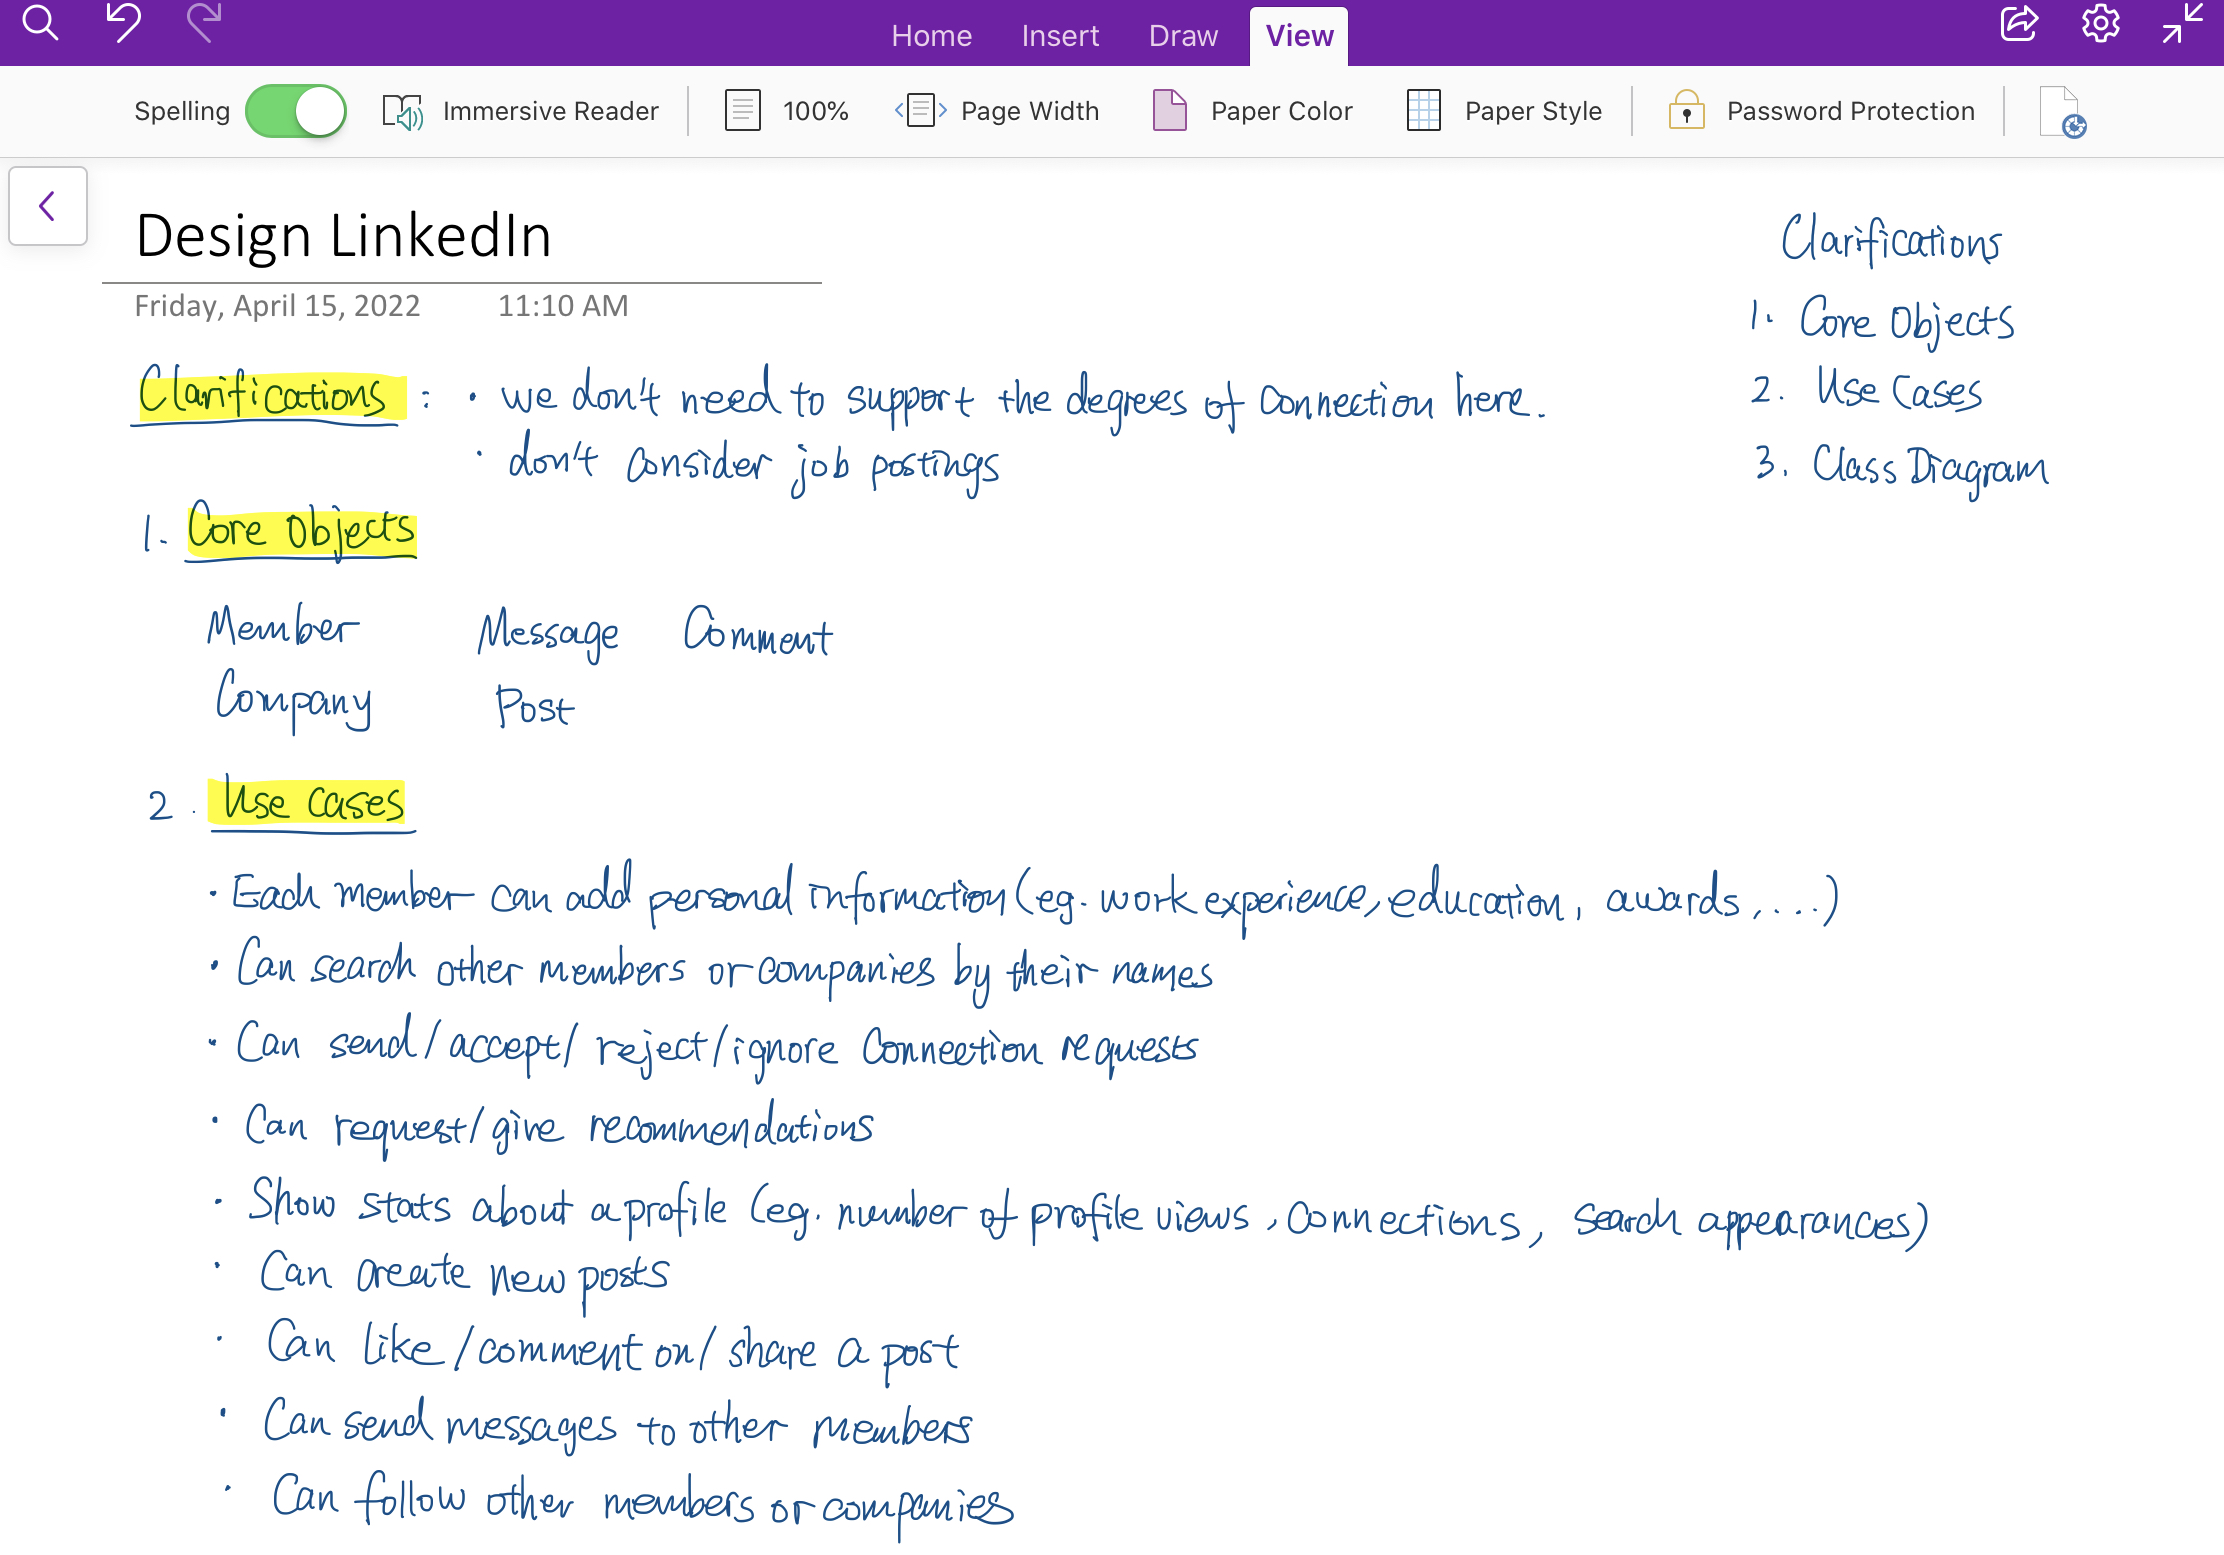 Home Insert Draw View
Spelling Immersive Reader 100% Page Width Paper Color Paper Style Password Protection
Design LinkedIn
Friday, April 15, 2022 11:10 AM
Clarifications
1. Core Objects
2. Use Cases
3. Class Diagram
Clarifications : • we don't need to support the degrees of connection here.
• don't consider job postings
1. Core Objects
Member Message Comment
Company Post
2. Use Cases
• Each member can add personal information (eg. work experience, education, awards, ....)
• Can search other members or companies by their names
• Can send/accept/reject/ignore Connection requests
• Can request/give recommendations
• Show stats about a profile (eg. number of profile views, connections, search appearances)
• Can create new posts
• Can like/comment on/share a post
• Can send messages to other members
• Can follow other members or companies